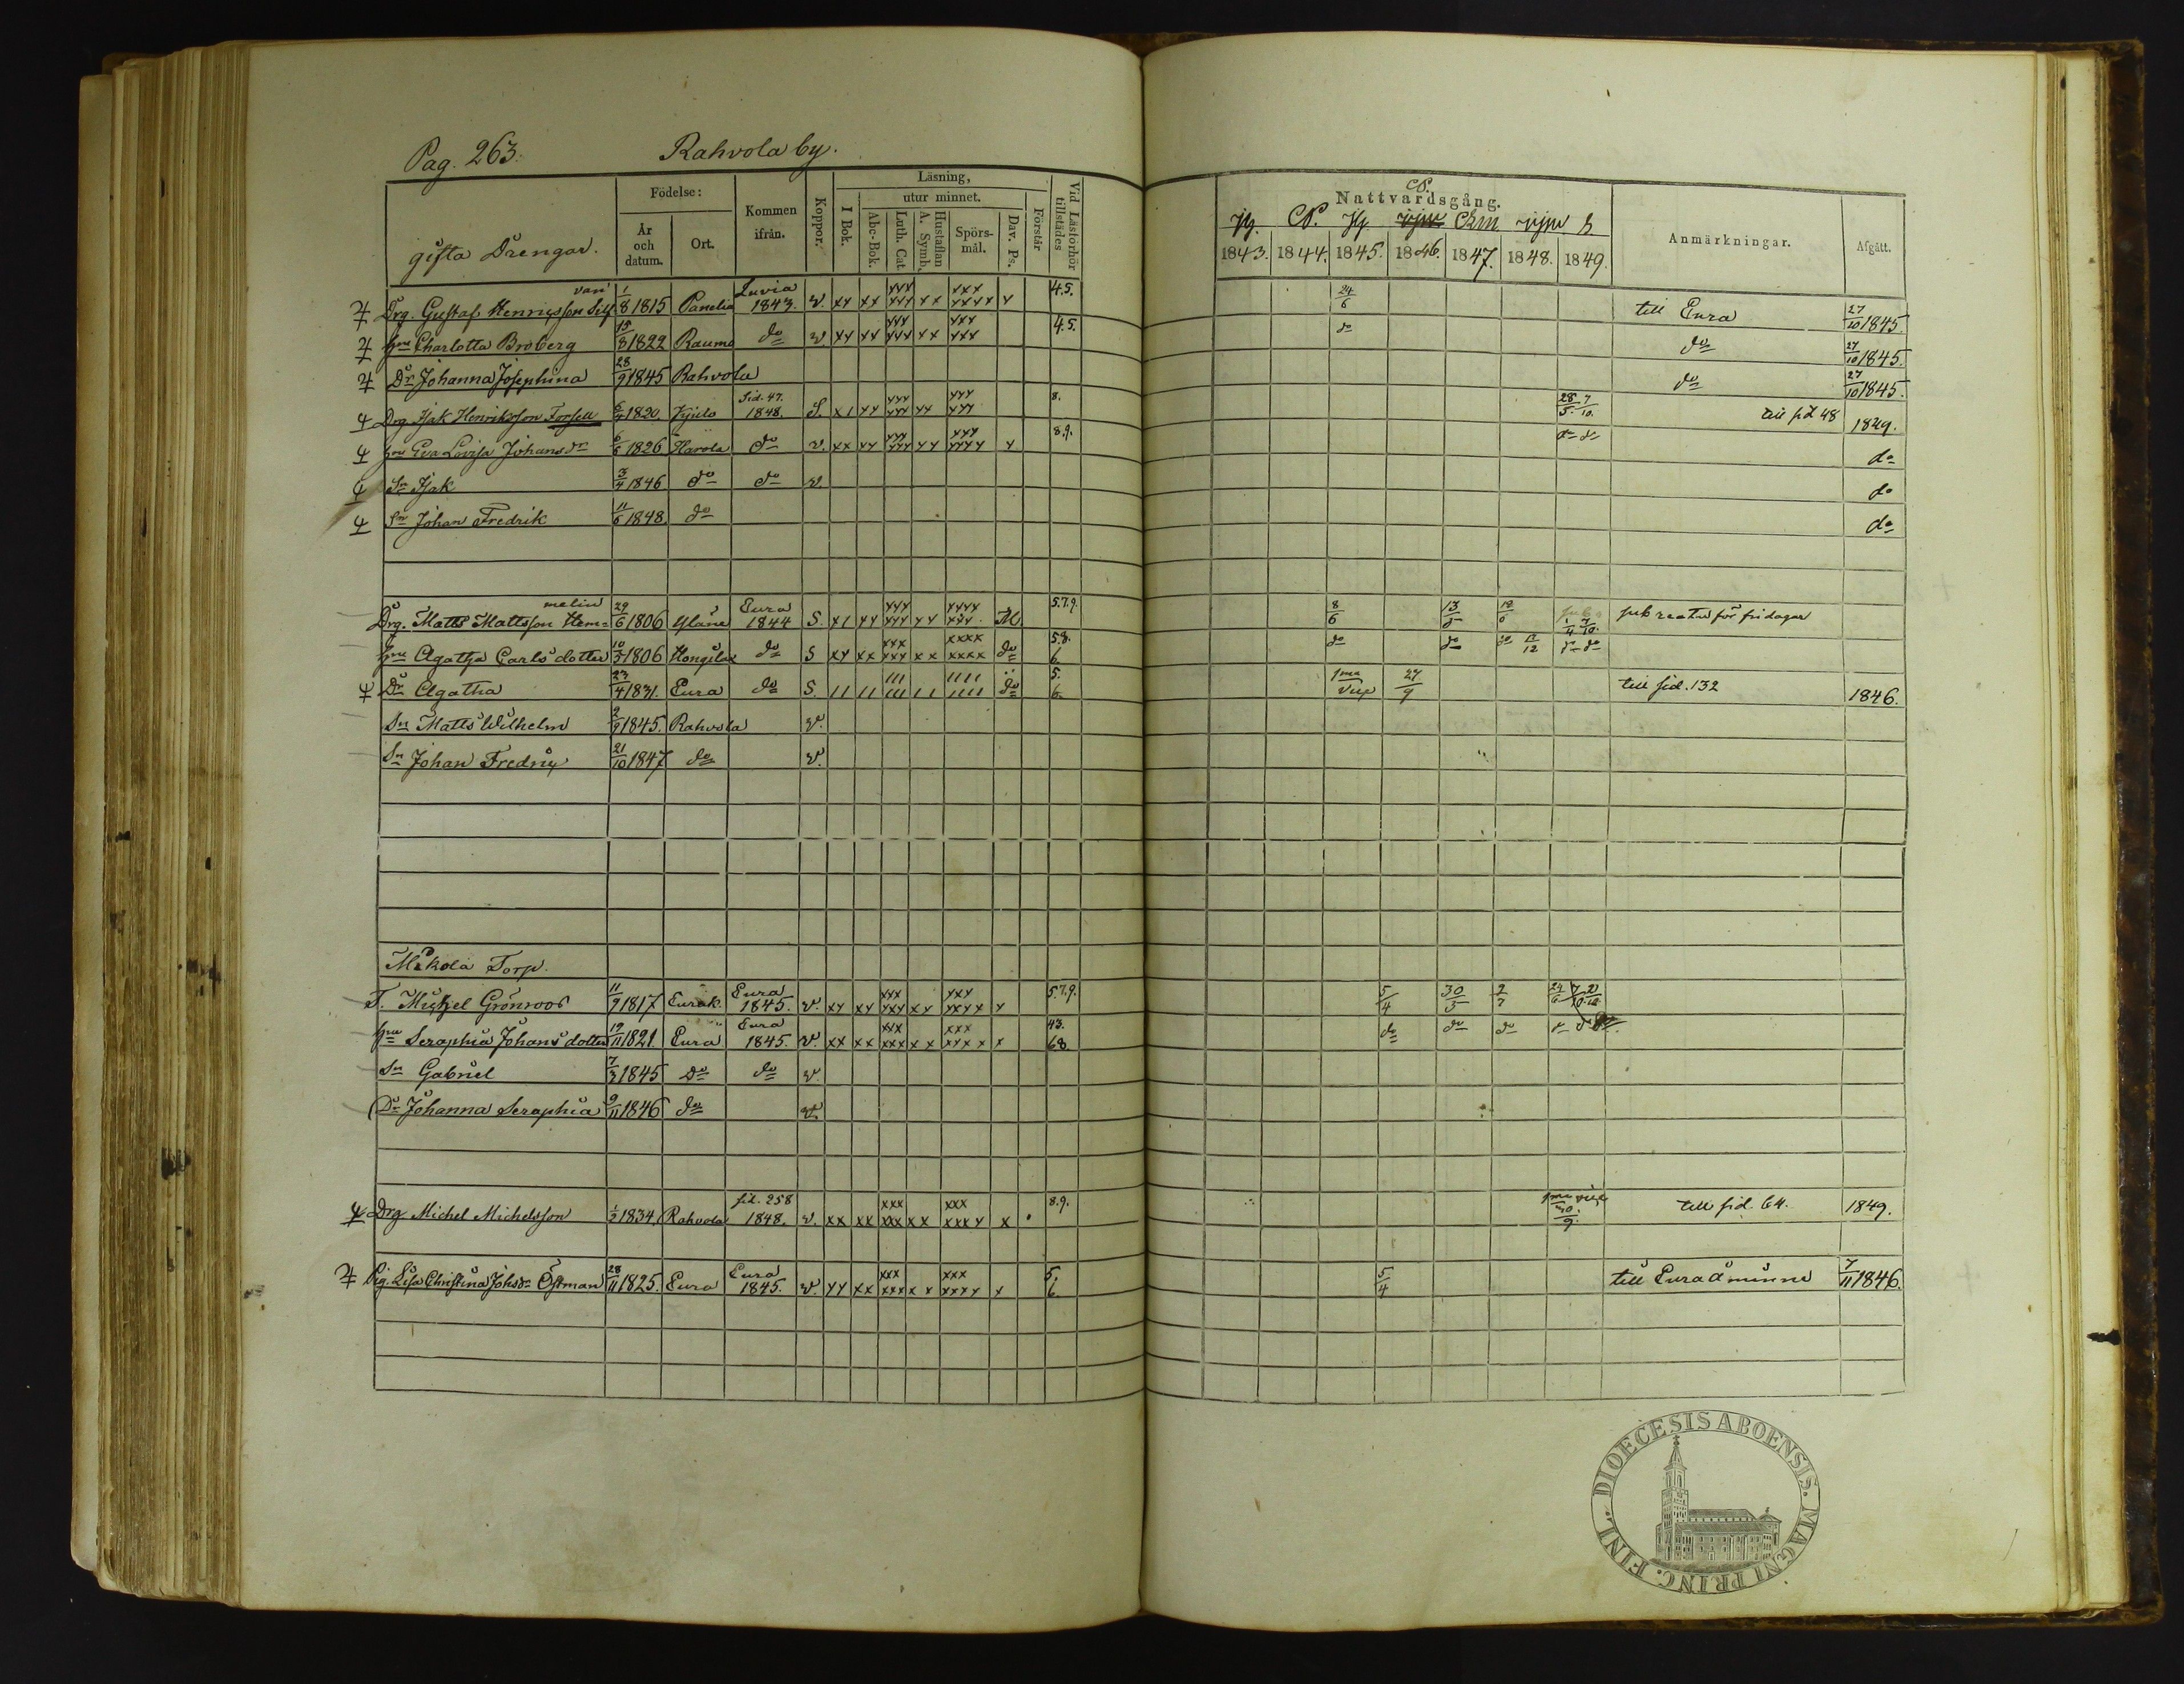 Pag. 263. Rahvola by.
gifta Drengar. Födelse: År och datum. Ort. Kommen ifrån. Koppor. Läsning, I Bok. utur minnet. Abc-Bok. Luth. Cat. Hustaflan A. Symb. Spörs-mål. Dav. Ps. Förstår Vid Läsförhör tillstädes
Nattvardsgång. 1843. 1844. 1845. 1846. 1847. 1848. 1849. Anmärkningar. Afgått.
Drg. Gustaf Henricsson 1/8 1815 Panelia Luvia 1843. v. xx xx xxx xxx xx xxx xxxx x 4.5. 24/6 till Eura 27/10 1845.
Hru Charlotta Broberg 15/3 1822 Raumo do v. xx xx xxx xxx xx xxx xxx 4.5. do do 27/10 1845.
Dr Johanna Josephina 28/9 1845 Rahvola do 27/10 1845.
Drg Isak Henriksson Forsell 1820 Sid. 47. 1848. S. x1 xx xxx xxx xx xxx xxx 8. 28/5 7/10 till sid 48 1849.
Hru Eva Lovisa Johansdr 6/6 1826 Harola do v. xx xx xxx xxx xx xxx xxxx x 8.9. do do do
Sn Isak 3/4 1846 do do v. do
Sn Johan Fredrik 11/6 1848. do do
melin
Drg. Matts Mattsson Hem= 29/6 1806 Yläne Eura 1844 S. x1 xx xxx xxx xx xxxx xxx M 5.7.9. 8/6 13/5 18/6 7/10. sub reatu för fridagar
Hru Agatha Carls dotter 10/3 1806 Hongilax do S xx xx xxx xxx xx xxxx xxxx do 5.8. 6. do do do 17/12 do do
Dr Agatha 23/4 1831. Eura do S. 11 11 111 111 11 1111 1111 do 5. 6. 1ma vice 27/9 till sid. 132 1846.
Sn Matts Wilhelm 2/9 1845. Rahvola v.
Sn Johan Fredric 21/10 1847 do v.
Mikola Torp.
T. Michel Grönroos 11/9 1817 Eurak. Eura 1845. v. xx xx xxx xxx xx xxx xxxx x 5.7.9. 5/4 30/5 2/7
Hru Seraphia Johans dotter 19/11 1821. Eura Eura 1845. v. xx xx xxx xxx xx xxx xxxx x 43. 68. do do do
Sn Gabriel 7/3 1845 Do do v.
Dr Johanna Seraphia 9/11 1846 do v.
Drg Michel Michelsson 1/2 1834. Rahvola sid. 258 1848. v. xx xx xxx xxx xx xxx xxxx x 8.9. 1ma vice 30/9. till sid. 64. 1849.
Pig. Lisa Christina Johsdr Östman 28/11 1825. Eura Eura 1845. v. xx xx xxx xxx xx xxx xxxx x 5. 6. 5/4 till Euraåminne 7/11 1846.
DIOECESIS ABOENSIS. MAGNI PRINC. FINL.